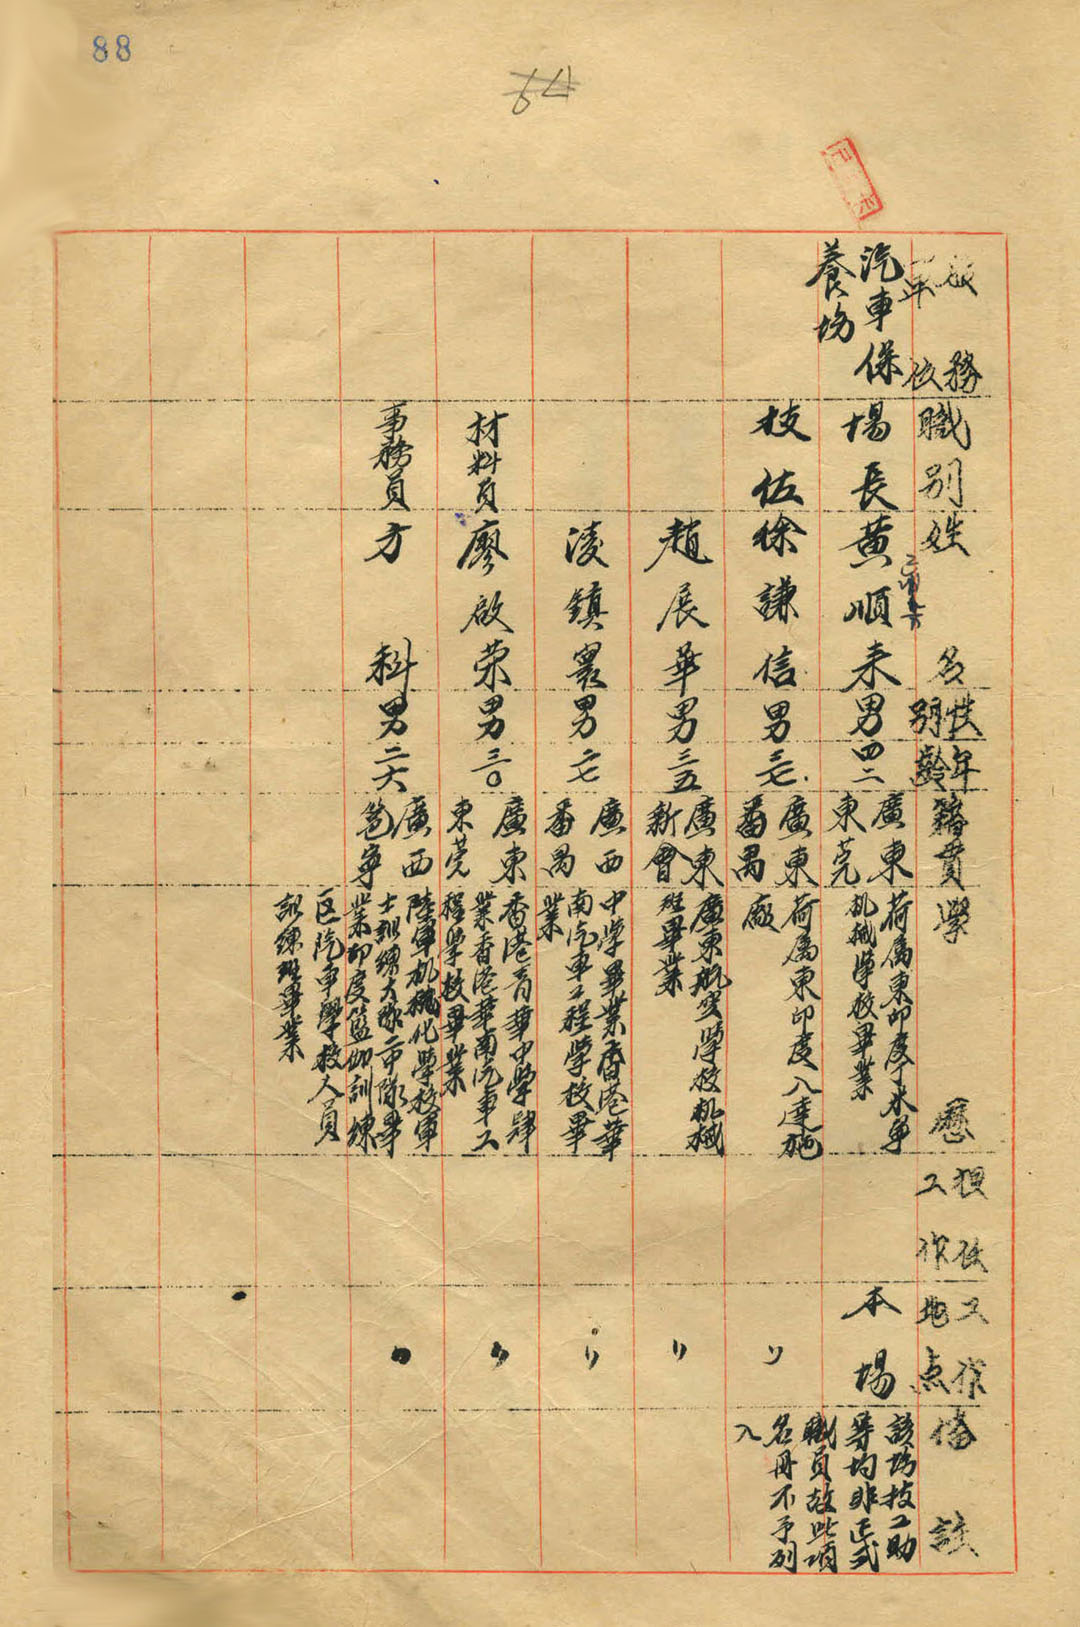 88
服務
單位
職別
姓名
性別
年齡
籍貫
學歷
担任
工作
工作
地点
備註
汽車保
養場
場長
黄順来
男
四二
廣東
東莞
荷属東印度
机械學校畢業
本場
該場技工助
等均非正式
職員故此項
名冊不予列
入
技佐
徐謙信
男
三七
廣東
番禺
荷属東印度八達施
廠
〃
趙展華
男
三五
廣東
新會
廣東航空學校机械
班畢業
〃
淩鎮寰
男
二七
廣西
番禺
中學畢業香港華
南汽車工程學校畢
業
〃
材料員
廖啟荣
男
三〇
廣東
東莞
香港育華中學肄
業香港華南汽車工
程學校畢業
〃
事務員
方科
男
二六
廣西
邕寧
陸軍机械化學校軍
士訓練大隊二中隊畢
業印度藍伽訓練
区汽車學校人員
訓練班畢業
〃